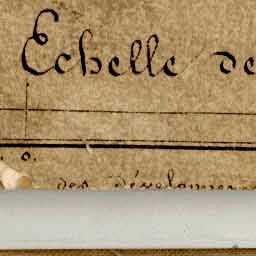 Echelle de
o.
des développem